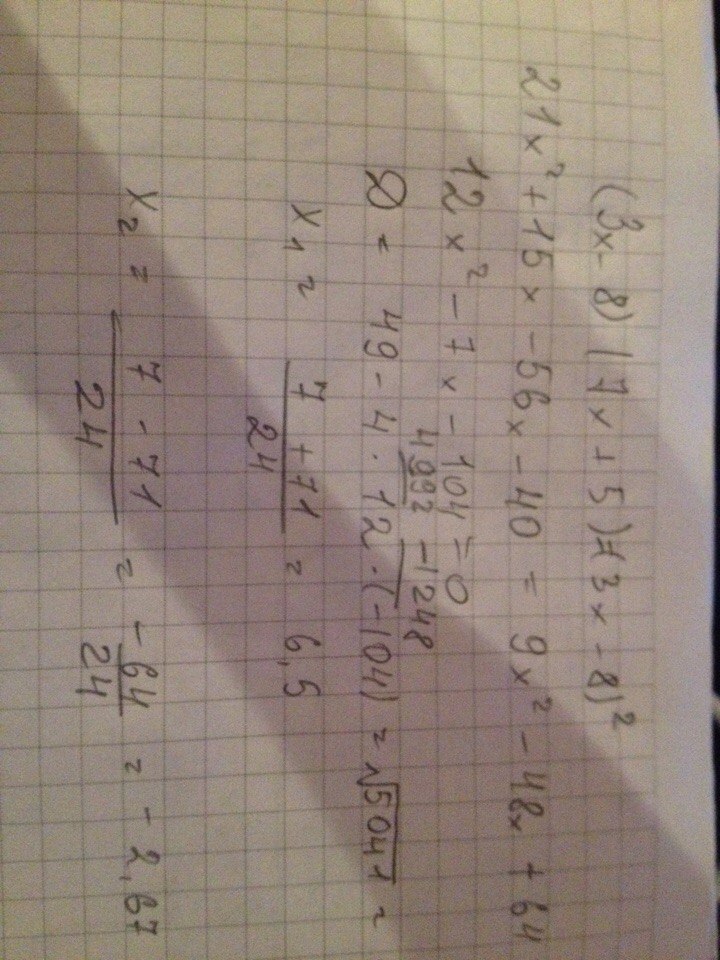 (3x-8)(7x+5)=(3x-8)²
21x²+15x-56x-40 = 9x²-48x+64
12x²-7x-104=0
4992 -1248
D = 49-4·12·(-104) = √5041 =
x₁ = (7+71)/24 = 6,5
x₂ = (7-71)/24 = -64/24 = -2,67